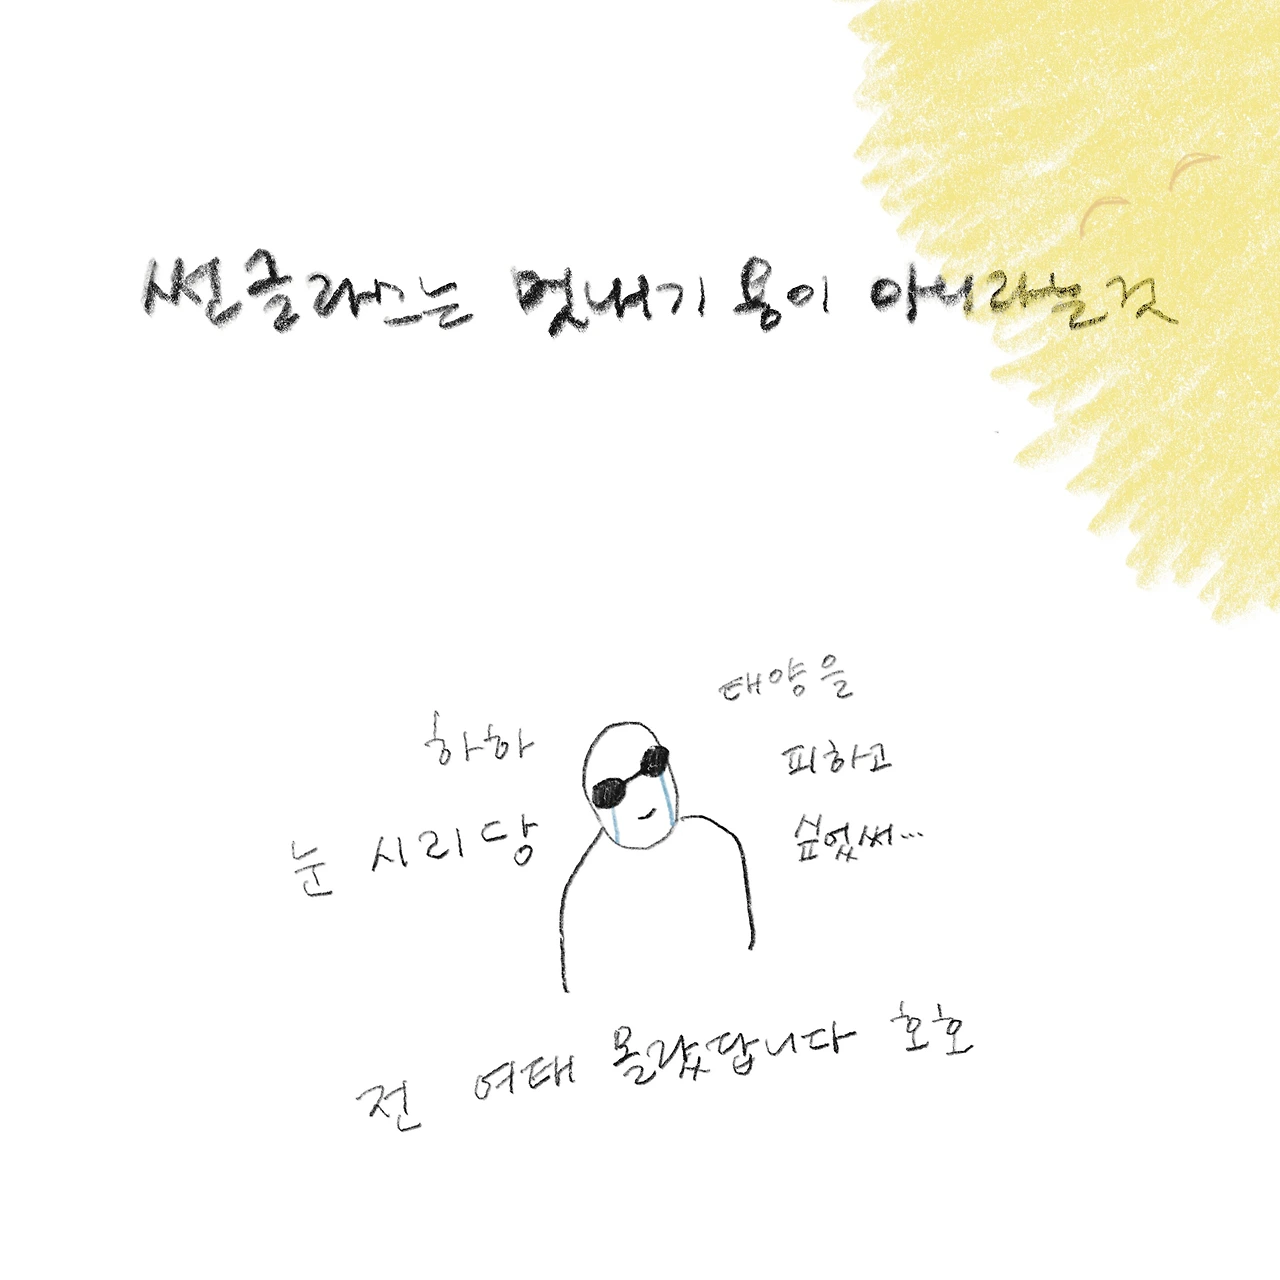 썬글라스는 멋내기 용이 아니라는것
하하
눈 시리당
태양을
피하고
싶었써...
전 여태 몰랐답니다 호호